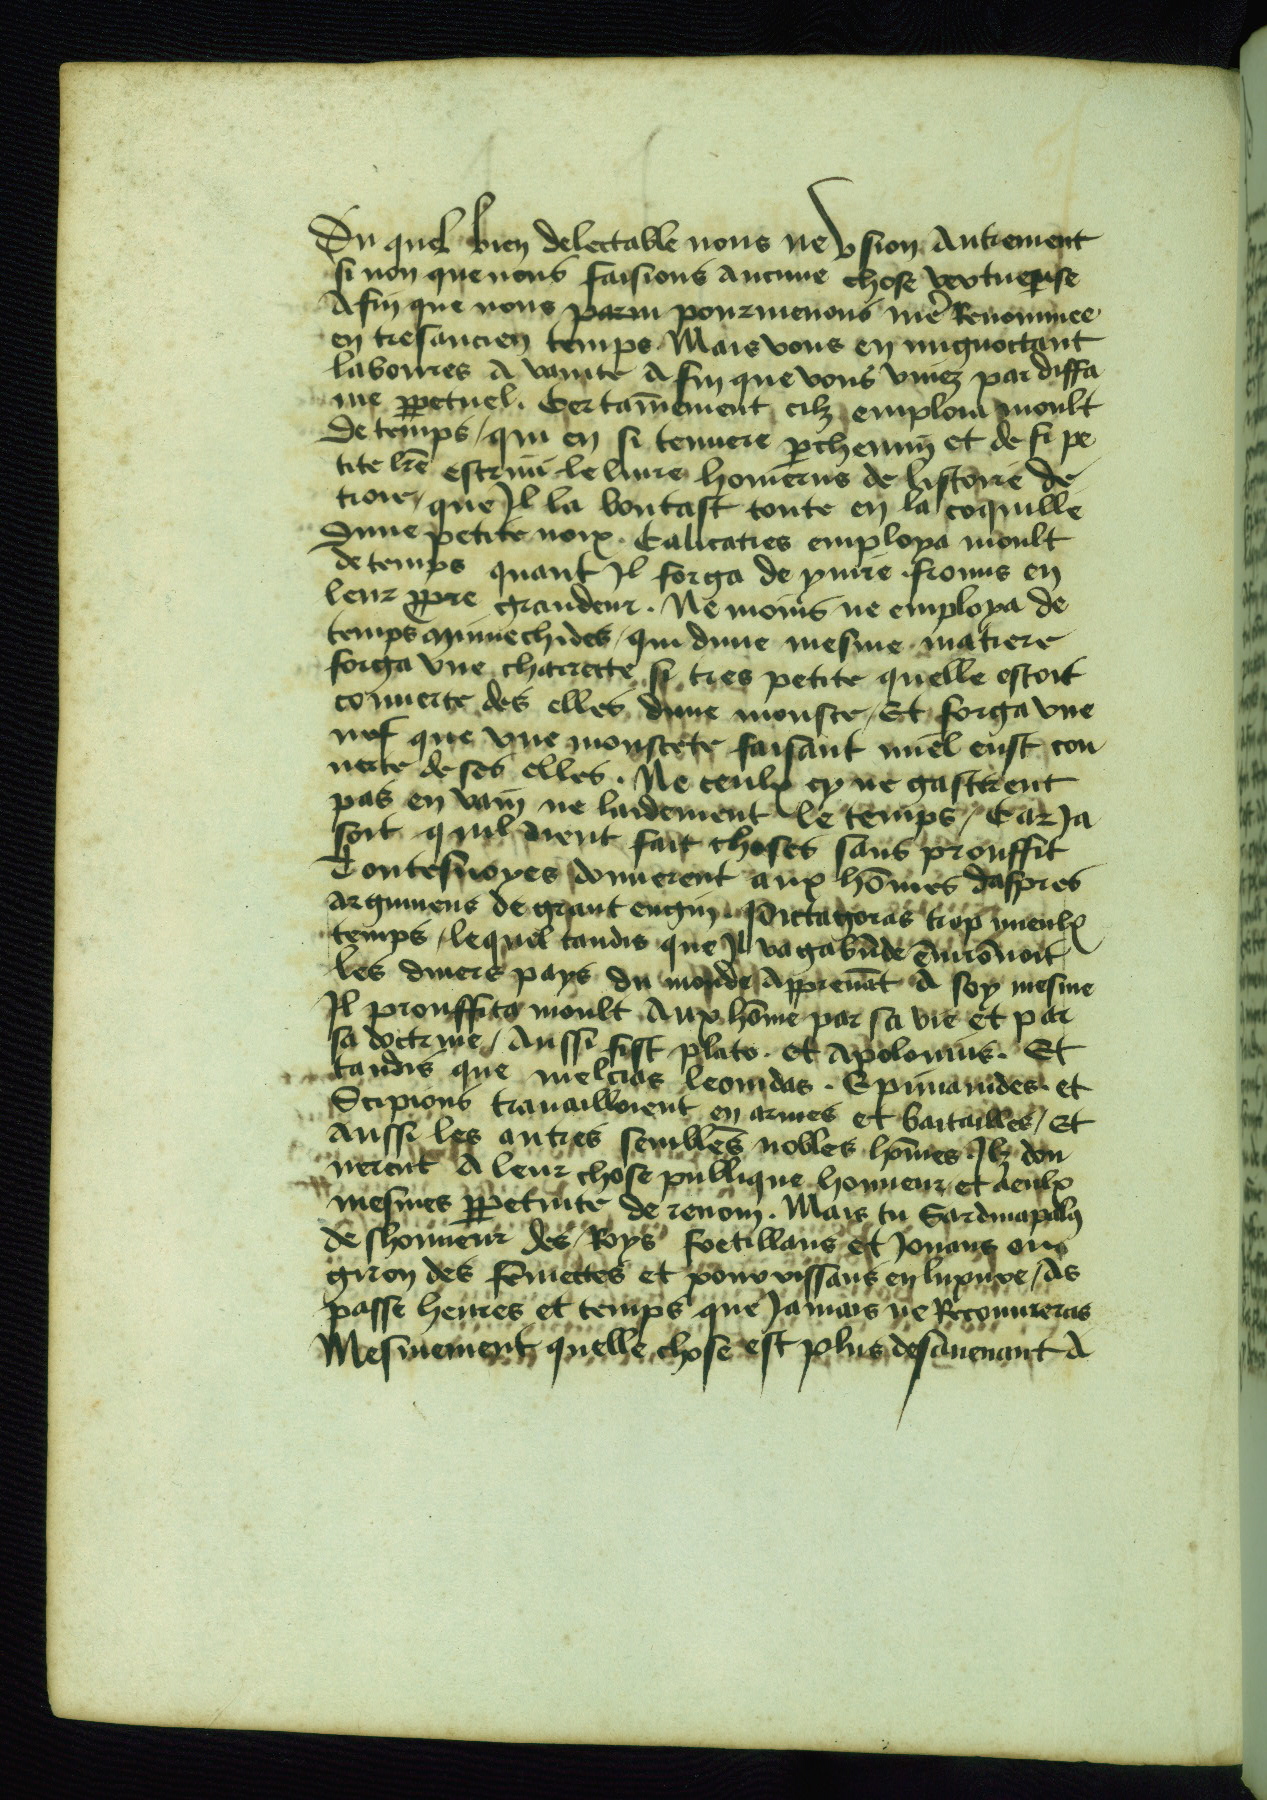 Du quel bien delectable nous ne vsion Autrement
si non que nous faisions aucune chose vertueuse
Afin que nous parm pourmenons nr̄e Renommee
en tresancien temps. Mais vous en nuguoctant
laboures A vanite Afin que vous viuez par diffa
me ꝑpetuel. Certain̄ement cilz emploia moult
de temps / qui en si tenuere ꝑchemin et de si pe
tite lr̄e escriui le liure homerus de listoire de
troie / que Jl la boutast toute en la coquille
dune petite noix. Calicatres employa moult
de temps quant Jl forga de yuire fromis en
leur ꝓpre grandeur. Ne moins ne employa de
temps mimechides / qui dune mesme matiere
forga vne charrette si tres petite quelle estoit
couuerte des elles dune mousce / Et forga vne
nef que vne mouscete faisant miel eust cou
uerte de ses elles. Ne ceulx cy ne gasterent
pas en vain ne laidement le temps / Car Ja
soit quil aient fait choses sans prouffit
Toutesuoyes donnerent aux hōmes daspres
argumens de grant engin. Pictagoras trop mieulx
temps / lequel tandis que Jl vagabūde ēuirōnoit
les diuers pays du monde Apprenāt A soy mesme
Jl prouffita moult Aux hōme par sa vie et par
sa doctrine / Aussi fist plato. et Apolonius. Et
tandis que melcias leonidas. Epimanides. et
Scipions trauailloient en armes et baitailles / Et
Aussi les autres semblēs nobles hōmes Jlz don
nerent A leur chose publique honneur et aeulx
mesmes ꝑpetuite de renom. Mais tu Sardinapalꝰ
deshonneur des Roys foetillans et Jouans ou
giron des fēmettes et pourrissans en luxure / As
passe heures et temps que Jamais ne Recouureras
Mesmement quelle chose est plus desauenant A